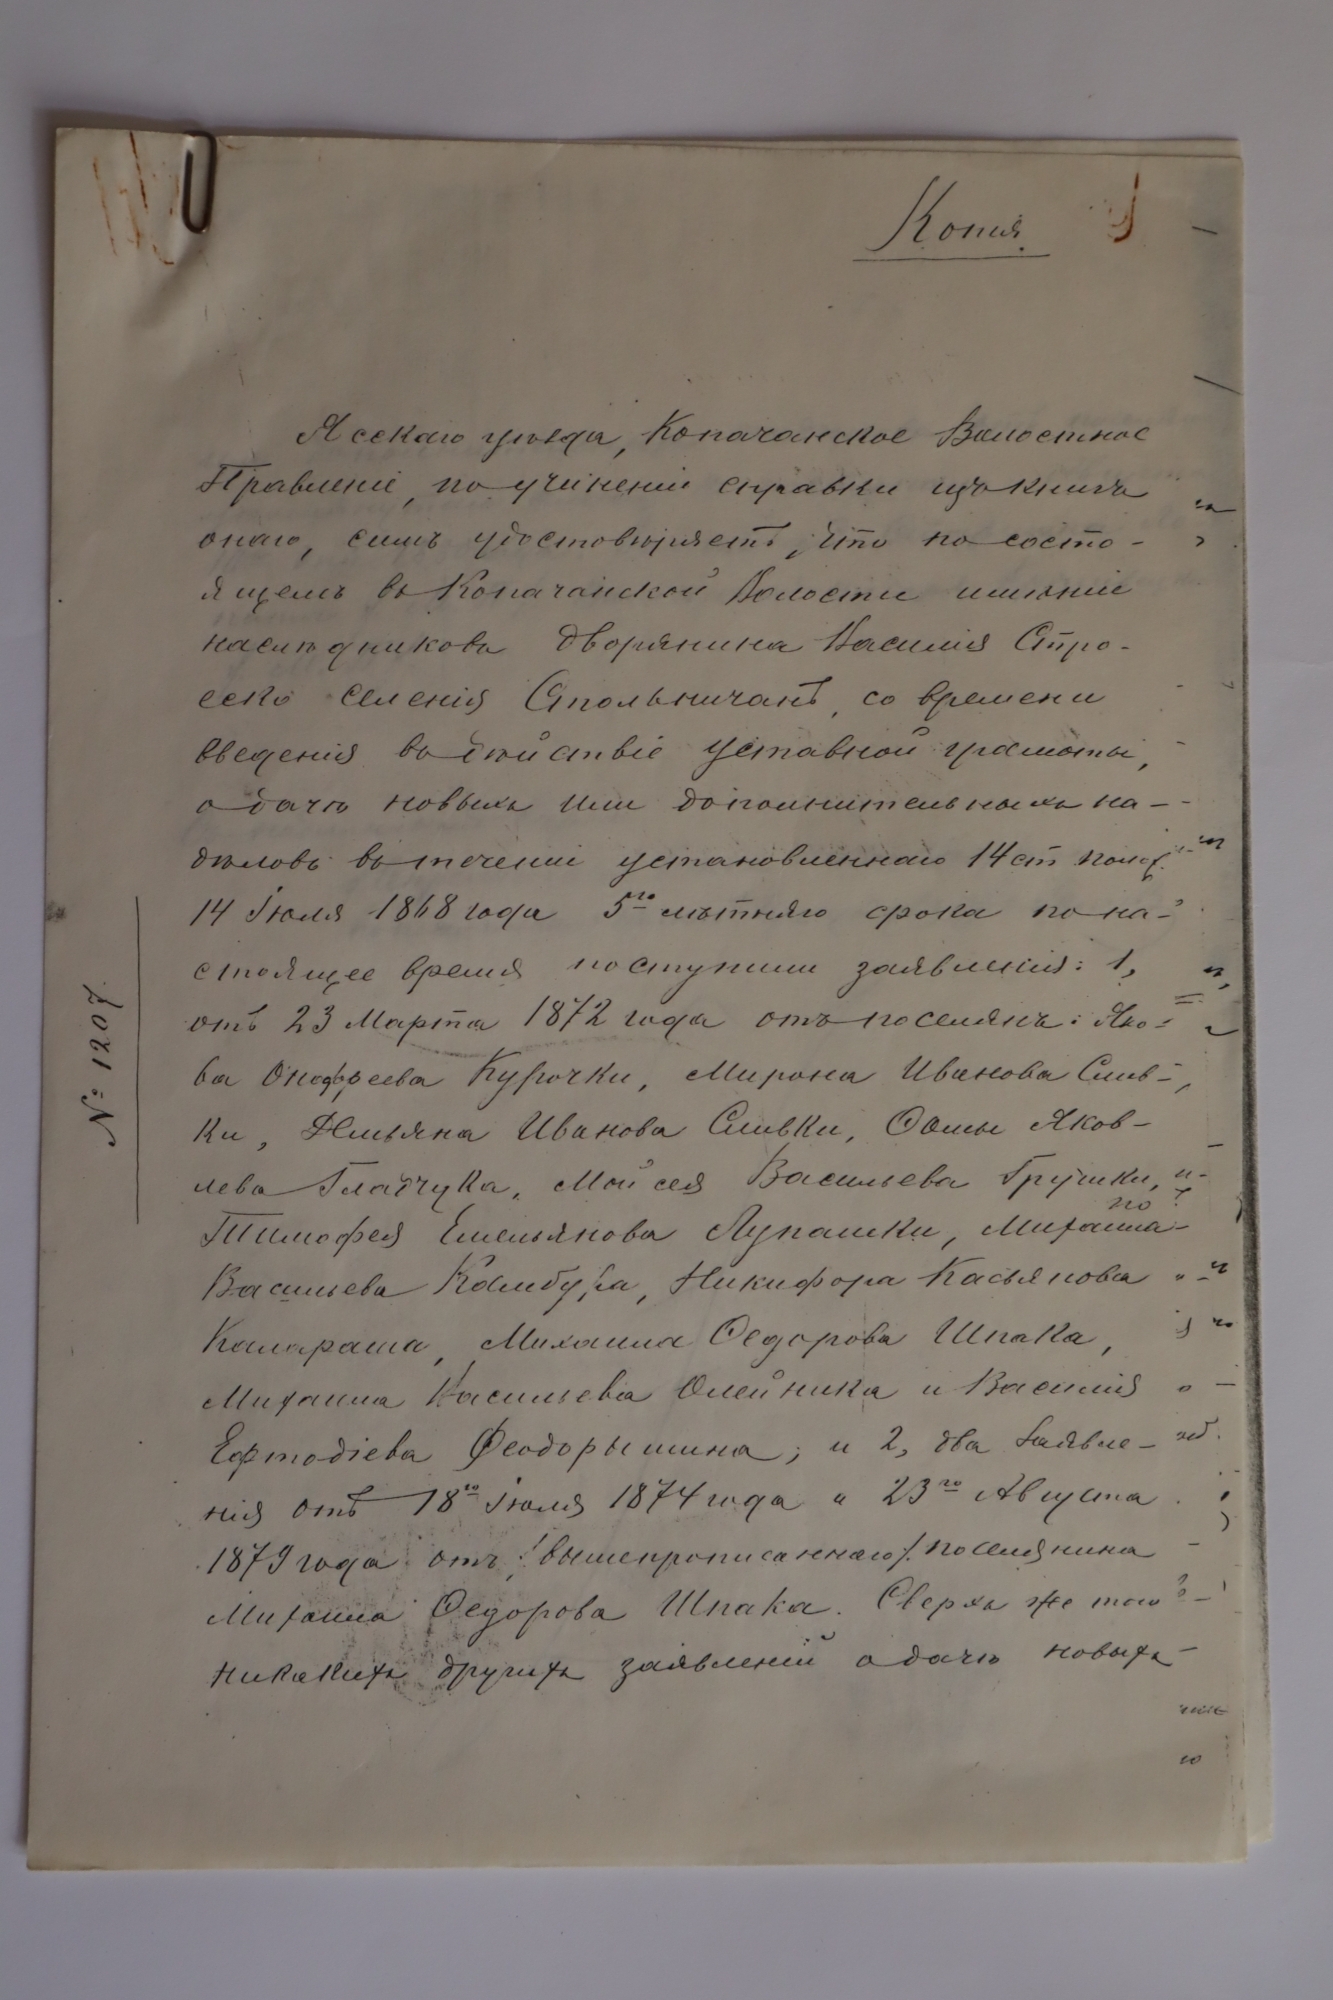 Копія.
Ясскаго уѣзда, Копачанское Волостное
Правленіе, по учиненіи справки изъ книгъ
онаго, симъ удостовѣряетъ, что по состо-
ящемъ въ Копачанской Волости имѣніи
наслѣдниковъ дворянина Василія Стро-
еско селенія Стольничанъ, со времени
введенія въ дѣйствіе уставной грамоты,
о дачѣ новыхъ или дополнительныхъ на-
дѣловъ въ теченіи установленнаго 14 ст. полож.
14 Іюля 1868 года 5го лѣтняго срока по на-
стоящее время поступили заявленія: 1,
отъ 23 Марта 1872 года отъ поселянъ: Яко-
ва Онофреева Курочки, Мирона Иванова Слив-
ки, Емельяна Иванова Сливки, Фомы Яков-
лева Гладчука, Мойсея Васильева Грушки,
Тимофея Емельянова Лупашки, Михаила
Васильева Камбура, Никифора Касьянова
Калараша, Михаила Федорова Шпака,
Михаила Васильева Олейника и Василія
Ефтодіева Феодорышина; и 2, два заявле-
нія отъ 18го Іюля 1874 года и 23го Августа
1879 года отъ /вышепрописаннаго/ поселянина
Михаила Федорова Шпака. Сверхъ же того
никакихъ другихъ заявленій о дачѣ новыхъ
№ 1207.